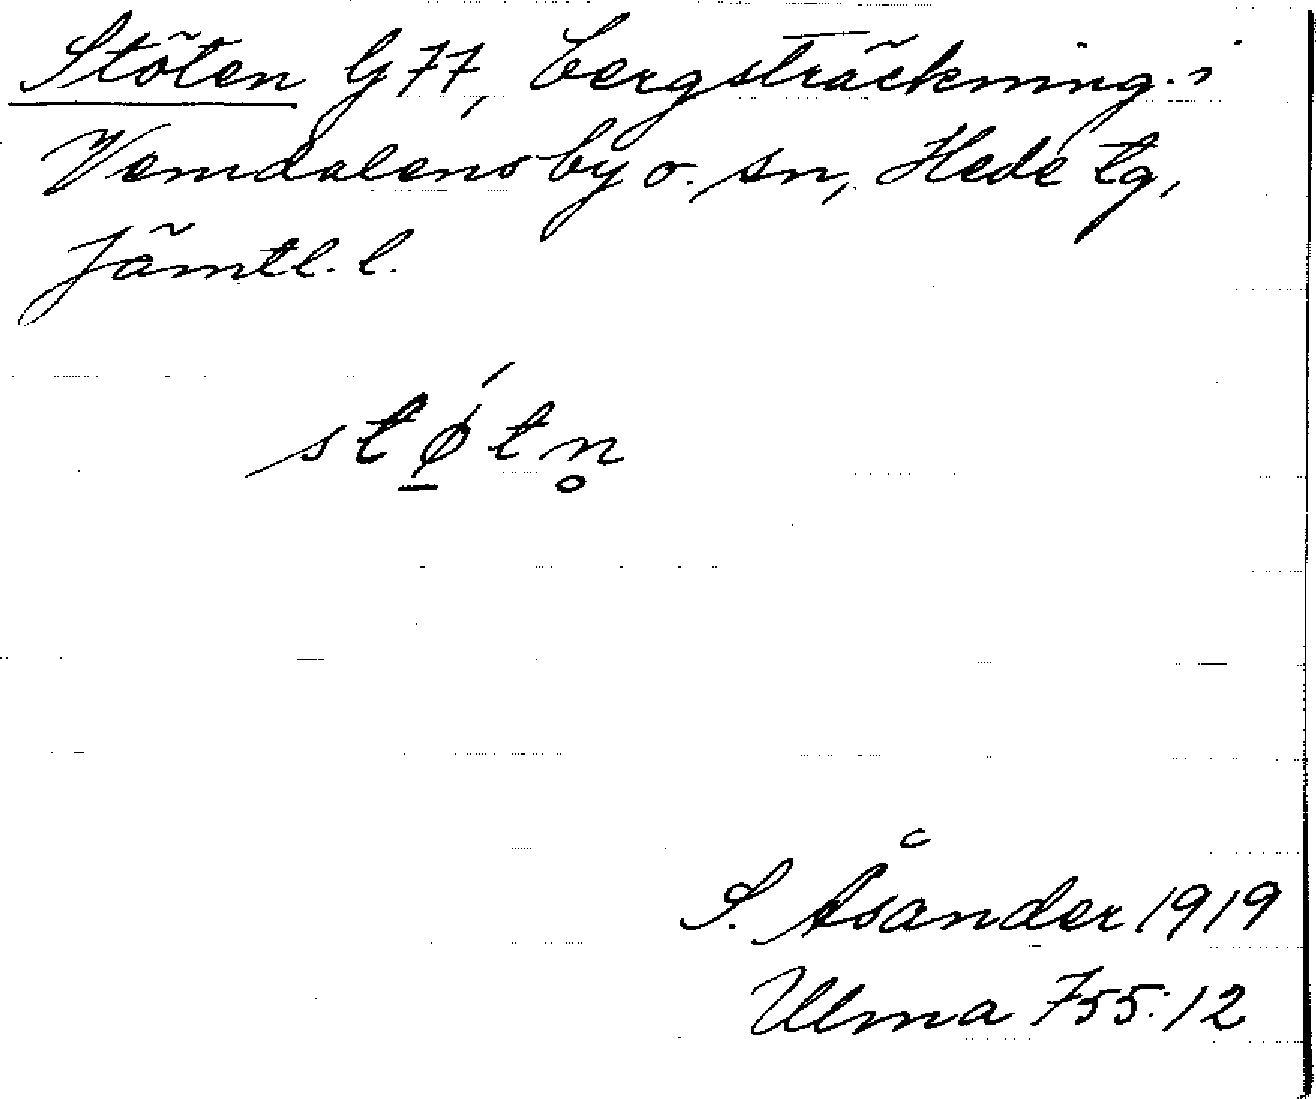 Stöten G77, bergsträckning i
Vemdalens by o. sn, Hede tg,
Jämtl. l.
stǿ̠tn̥
S. Åsander 1919
Ulma 755:12